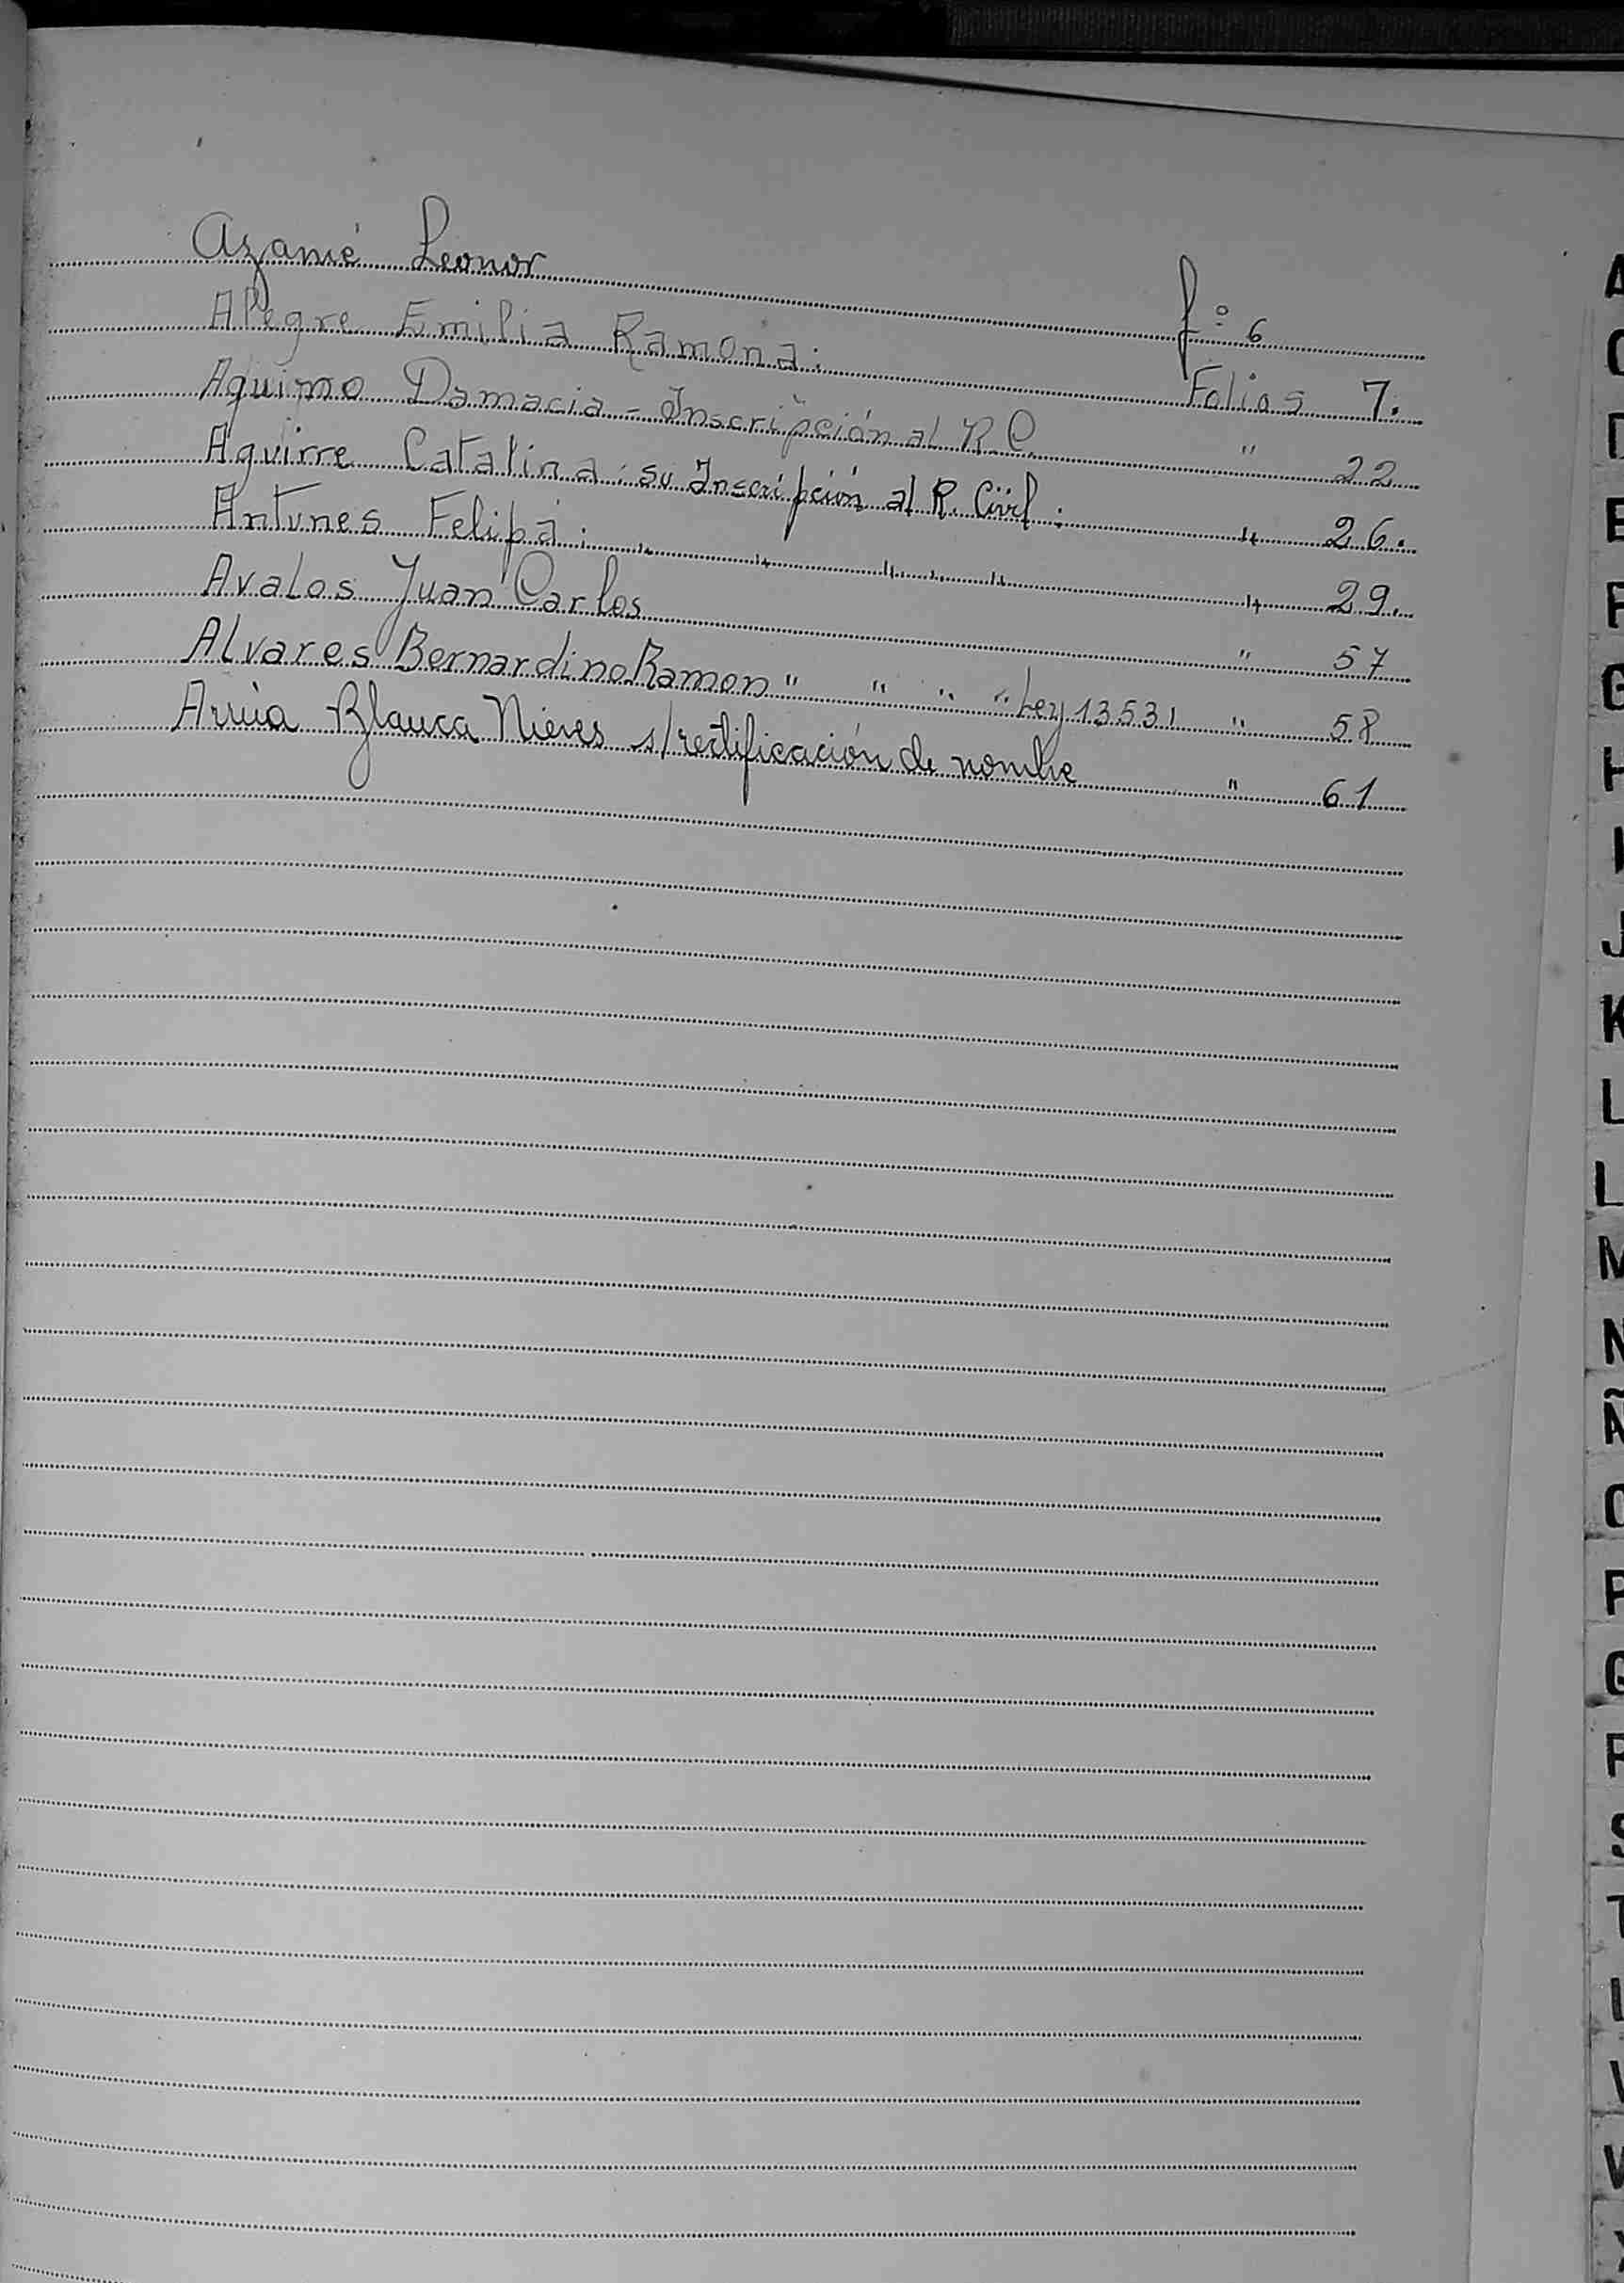 Azamé Leonor f:º 6
Alegre Emilia Ramona: Folios 7.
Aquino Damacia - Inscripción al R.C. " 22
Aguirre Catalina: su Inscripción al R. Civil: " 26.
Antunes Felipa: " " " " " 29.
Avalos Juan Carlos " 57
Alvares Bernardino Ramon " " " " Ley 13531 " 58
Arrúa Blanca Nieves s/rectificación de nombre " 61
A
C
D
E
F
G
H
I
J
K
L
L
M
N
Ñ
O
P
Q
R
S
T
U
V
W